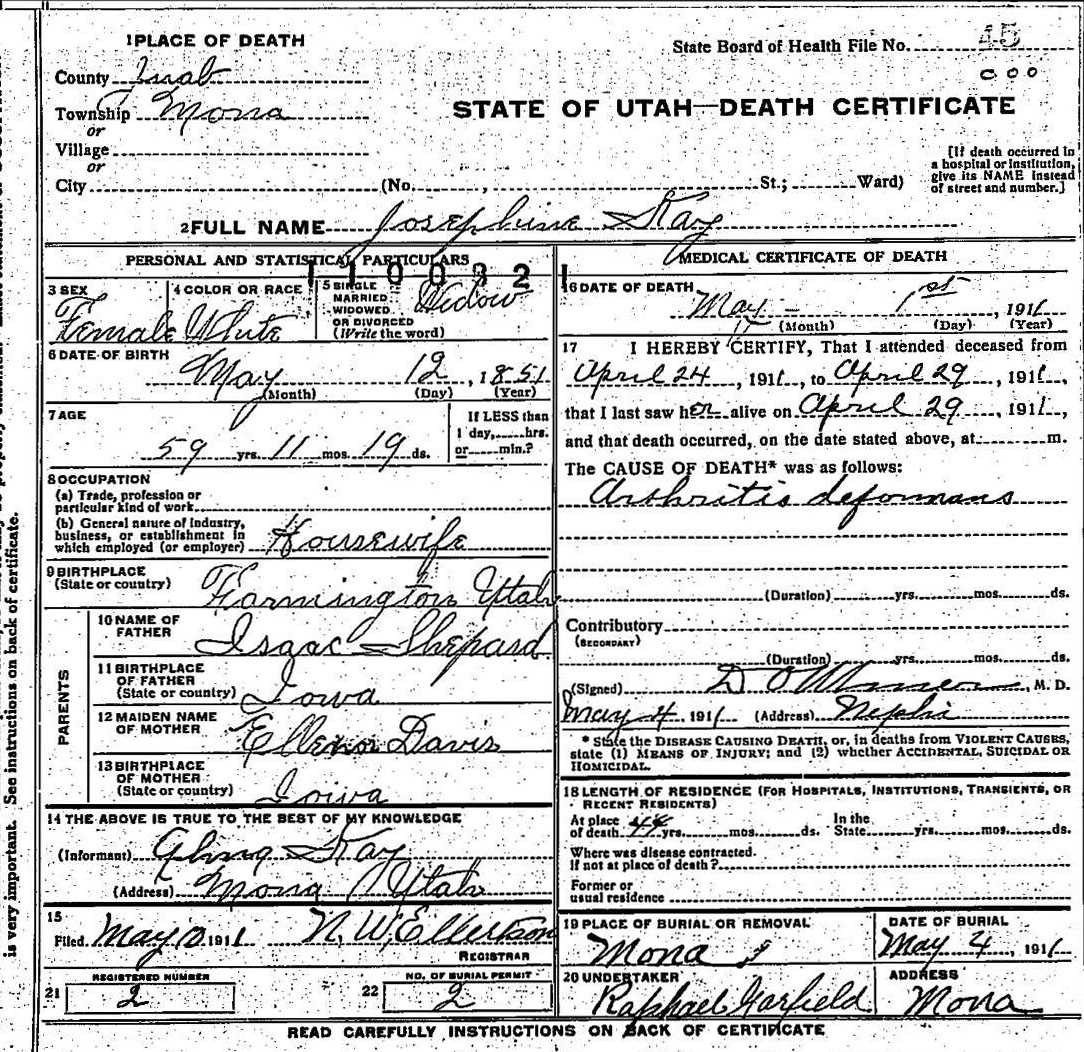 1 PLACE OF DEATH
State Board of Health File No. 45
000
County Juab
Township Mona
or
Village
or
City (No. , St.; Ward)
STATE OF UTAH—DEATH CERTIFICATE
[If death occurred in
a hospital or institution,
give its NAME instead
of street and number.]
2 FULL NAME Josephine Kay
PERSONAL AND STATISTICAL PARTICULARS
110082
3 SEX
Female
4 COLOR OR RACE
White
5 SINGLE
MARRIED
WIDOWED
OR DIVORCED
(Write the word)
Widow
6 DATE OF BIRTH
May 12, 1851
(Month) (Day) (Year)
7 AGE
59 yrs. 11 mos. 19 ds.
If LESS than
1 day, hrs.
or min.?
8 OCCUPATION
(a) Trade, profession or
particular kind of work
(b) General nature of industry,
business, or establishment in
which employed (or employer) Housewife
9 BIRTHPLACE
(State or country) Farmington Utah
PARENTS
10 NAME OF
FATHER Isaac Shepard
11 BIRTHPLACE
OF FATHER
(State or country) Iowa
12 MAIDEN NAME
OF MOTHER Ellenor Davis
13 BIRTHPLACE
OF MOTHER
(State or country) Iowa
14 THE ABOVE IS TRUE TO THE BEST OF MY KNOWLEDGE
(Informant) Kay
(Address) Mona Utah
15
Filed May 1911 N. W. Ellertson
REGISTRAR
REGISTERED NUMBER
21 2
NO. OF BURIAL PERMIT
22 2
MEDICAL CERTIFICATE OF DEATH
16 DATE OF DEATH
May – 1st, 1911
(Month) (Day) (Year)
17 I HEREBY CERTIFY, That I attended deceased from
April 24, 1911, to April 29, 1911,
that I last saw her alive on April 29, 1911,
and that death occurred, on the date stated above, at m.
The CAUSE OF DEATH* was as follows:
Arthritis deformans
(Duration) yrs. mos. ds.
Contributory
(SECONDARY)
(Duration) yrs. mos. ds.
(Signed) D O , M. D.
May 4 1911 (Address) Nephi
* State the DISEASE CAUSING DEATH, or, in deaths from VIOLENT CAUSES,
state (1) MEANS OF INJURY; and (2) whether ACCIDENTAL, SUICIDAL OR
HOMICIDAL.
18 LENGTH OF RESIDENCE (FOR HOSPITALS, INSTITUTIONS, TRANSIENTS, OR
RECENT RESIDENTS)
At place
of death yrs. mos. ds.
In the
State yrs. mos. ds.
Where was disease contracted.
If not at place of death?
Former or
usual residence
19 PLACE OF BURIAL OR REMOVAL
Mona
DATE OF BURIAL
May 4, 1911
20 UNDERTAKER
Raphael Garfield
ADDRESS
Mona
READ CAREFULLY INSTRUCTIONS ON BACK OF CERTIFICATE
is very important. See instructions on back of certificate.